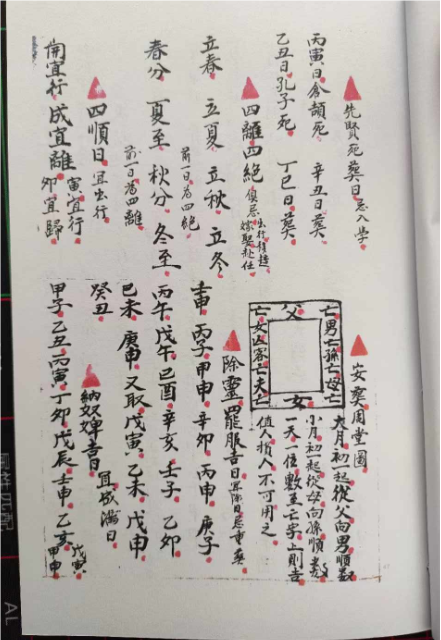 先賢死葬日 忌入學
丙寅日倉頡死 辛丑日葬
乙丑日孔子死 丁巳日葬
四離四絕 俱忌出行修造
嫁娶赴任
立春 立夏 立秋 立冬
前一日為四絕
春分 夏至 秋分 冬至
前一日為四離
四順日 宜出行
開宜行 成宜離 寅宜行
卯宜歸
安葬周堂圖
父
亡男亡孫亡母亡
亡女亡客亡夫亡
女
大月初一起從父向男順數
小月初一起從母向孫順數
一天一位數至亡字上則吉
值人損人不可用之
除靈罷服吉日 宜除日忌重喪
壬申 丙子 甲申 辛卯 丙申 庚子
丙午 戊午 己酉 辛亥 壬子 乙卯
己未 庚申 又取戊寅 乙未 戊申
癸丑
納奴婢吉日 宜成滿日
甲子 乙丑 丙寅 丁卯 戊辰 壬申 乙亥 戊寅
甲申
AL